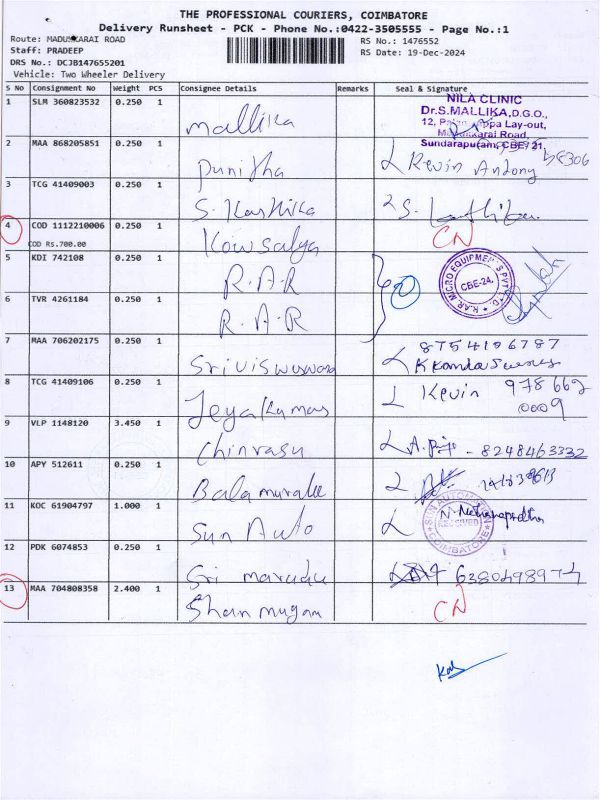 THE PROFESSIONAL COURIERS, COIMBATORE
Delivery Runsheet - PCK - Phone No.:0422-3505555 - Page No.:1
Route: MADUKKARAI ROAD
RS No.: 1476552
Staff: PRADEEP
RS Date: 19-Dec-2024
DRS No.: DCJB147655201
Vehicle: Two Wheeler Delivery
S No Consignment No Weight PCS Consignee Details Remarks Seal & Signature
1 SLM 360823532 0.250 1 mallika
NILA CLINIC
Dr.S.MALLIKA,D.G.O.,
Lay-out,
Road,
Sundarapuram, CBE 21.
2 MAA 868205851 0.250 1 Punitha Kevin Antony
3 TCG 41409003 0.250 1 S. Karthika S.
4 COD 1112210006 0.250 1 Kowsalya CN
COD Rs.700.00
5 KDI 742108 0.250 1 R.A.R
R.A.R MICRO EQUIPMENTS PVT LTD.
CBE-24.
6 TVR 4261184 0.250 1 R.A.R
7 MAA 706202175 0.250 1
8754196787
8 TCG 41409106 0.250 1 Jeyakumar Kevin 978 662
0009
9 VLP 1148120 3.450 1 Chinrasu - 8248463332
10 APY 512611 0.250 1
11 KOC 61904797 1.000 1 Sun Auto
SUN AUTOMATION
RECEIVED
COIMBATORE
12 PDK 6074853 0.250 1 Sri
13 MAA 704808358 2.400 1 Shanmugam CN